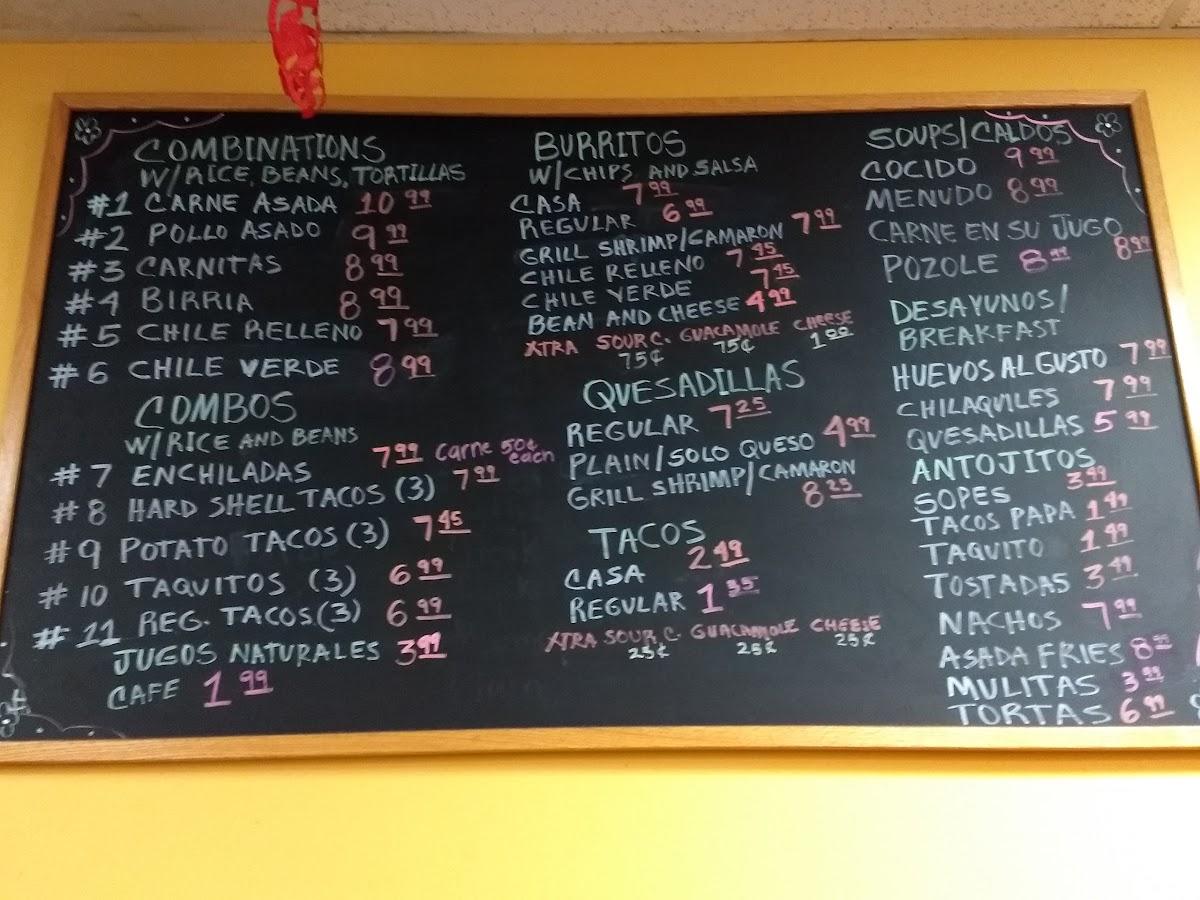 COMBINATIONS
W/RICE, BEANS, TORTILLAS
#1 CARNE ASADA 10 99
#2 POLLO ASADO 9 99
#3 CARNITAS 8 99
#4 BIRRIA 8 99
#5 CHILE RELLENO 7 99
#6 CHILE VERDE 8 99
COMBOS
W/RICE AND BEANS
#7 ENCHILADAS 7 99 Carne 50¢ each
#8 HARD SHELL TACOS (3) 7 99
#9 POTATO TACOS (3) 7 45
#10 TAQUITOS (3) 6 99
#11 REG. TACOS (3) 6 99
JUGOS NATURALES 3 99
CAFE 1 99
BURRITOS
W/CHIPS AND SALSA
CASA 7 99
REGULAR 6 99
GRILL SHRIMP/CAMARON 7 99
CHILE RELLENO 7 45
CHILE VERDE 7 45
BEAN AND CHEESE 4 99
XTRA SOUR C. GUACAMOLE CHEESE
75¢ 75¢ 1 00
QUESADILLAS
REGULAR 7 25
PLAIN/SOLO QUESO 4 99
GRILL SHRIMP/CAMARON
8 25
TACOS
CASA 2 49
REGULAR 1 35
XTRA SOUR C. GUACAMOLE CHEESE
25¢ 25¢ 25¢
SOUPS/CALDOS
COCIDO 9 99
MENUDO 8 99
CARNE EN SU JUGO 8 99
POZOLE 8 99
DESAYUNOS/
BREAKFAST
HUEVOS AL GUSTO 7 99
CHILAQUILES 7 99
QUESADILLAS 5 99
ANTOJITOS
SOPES 3 99
TACOS PAPA 1 49
TAQUITO 1 49
TOSTADAS 3 49
NACHOS 7 99
ASADA FRIES 8 99
MULITAS 3 99
TORTAS 6 99